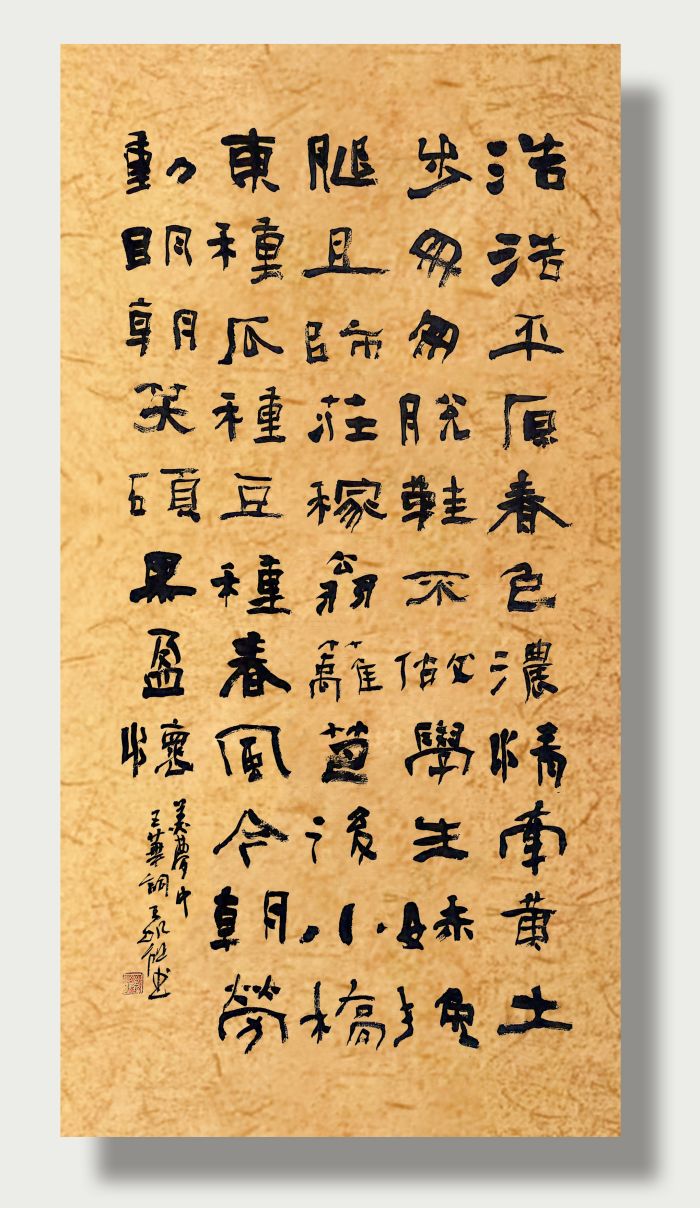 浩浩平原春色濃情牽黄土
步匆匆脱鞋不做學生妹挽
腿且師莊稼翁籬笆後小橋
東種瓜種豆種春風今朝勞
動明朝笑碩果盈懷
美夢中
王華詞王